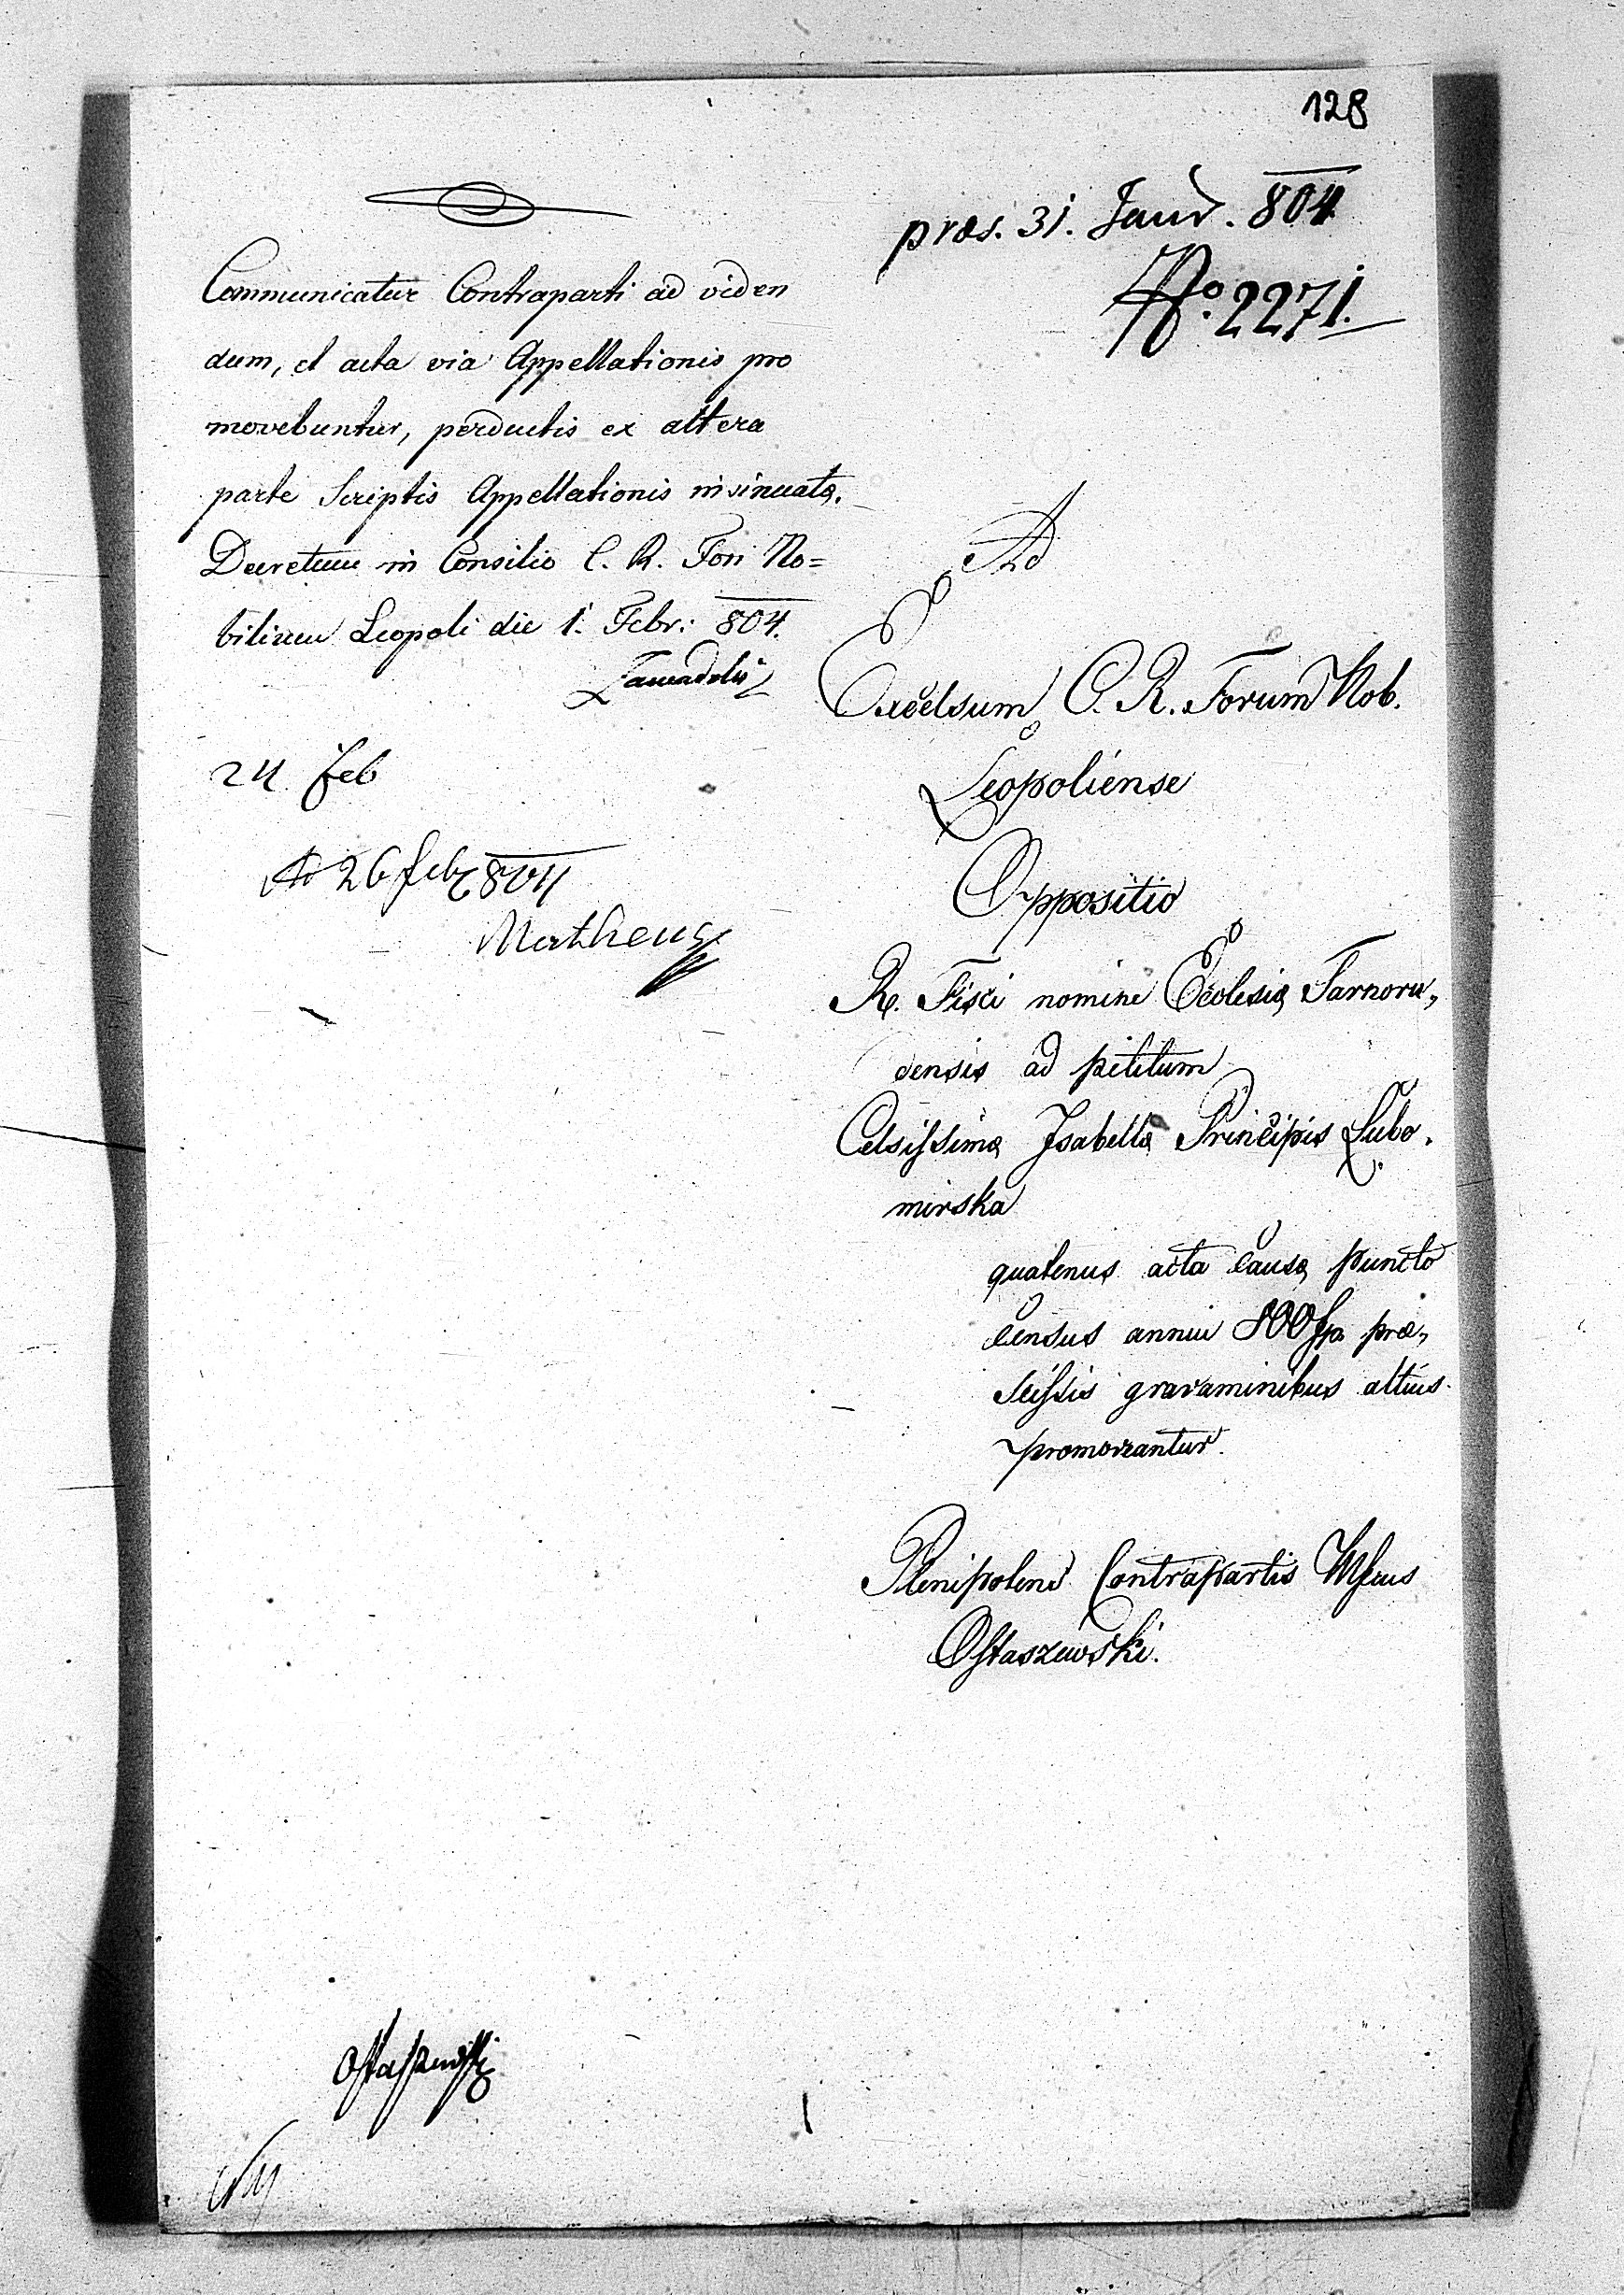 128
præs. 31. Janr. 804
No. 2271.
Communicatur Contraparti ad viden
dum, et acta via Appellationis pro
movebuntur, perductis ex altera
parte Scriptis Appellationis insinuatæ.
Decretum in Consilio C. R. Fori No=
bilium Leopoli die 1. Febr: 804.
24. feb
26 feb 804
Matheus
Ad
Excelsum C. R. Forum Nob.
Leopoliense
Oppositio
R. Fisci nomine Ecclesiæ Tarnoru„
densis ad petitum
Celsissimæ Isabellæ Principis Lubo.
mirska
quatenus acta causæ puncto
census annui 800 fp. præ„
scissis gravaminibus altius
promoveantur.
Plenipotens Contrapartis Mfcus
Ostaszewski.
Ostaszewski